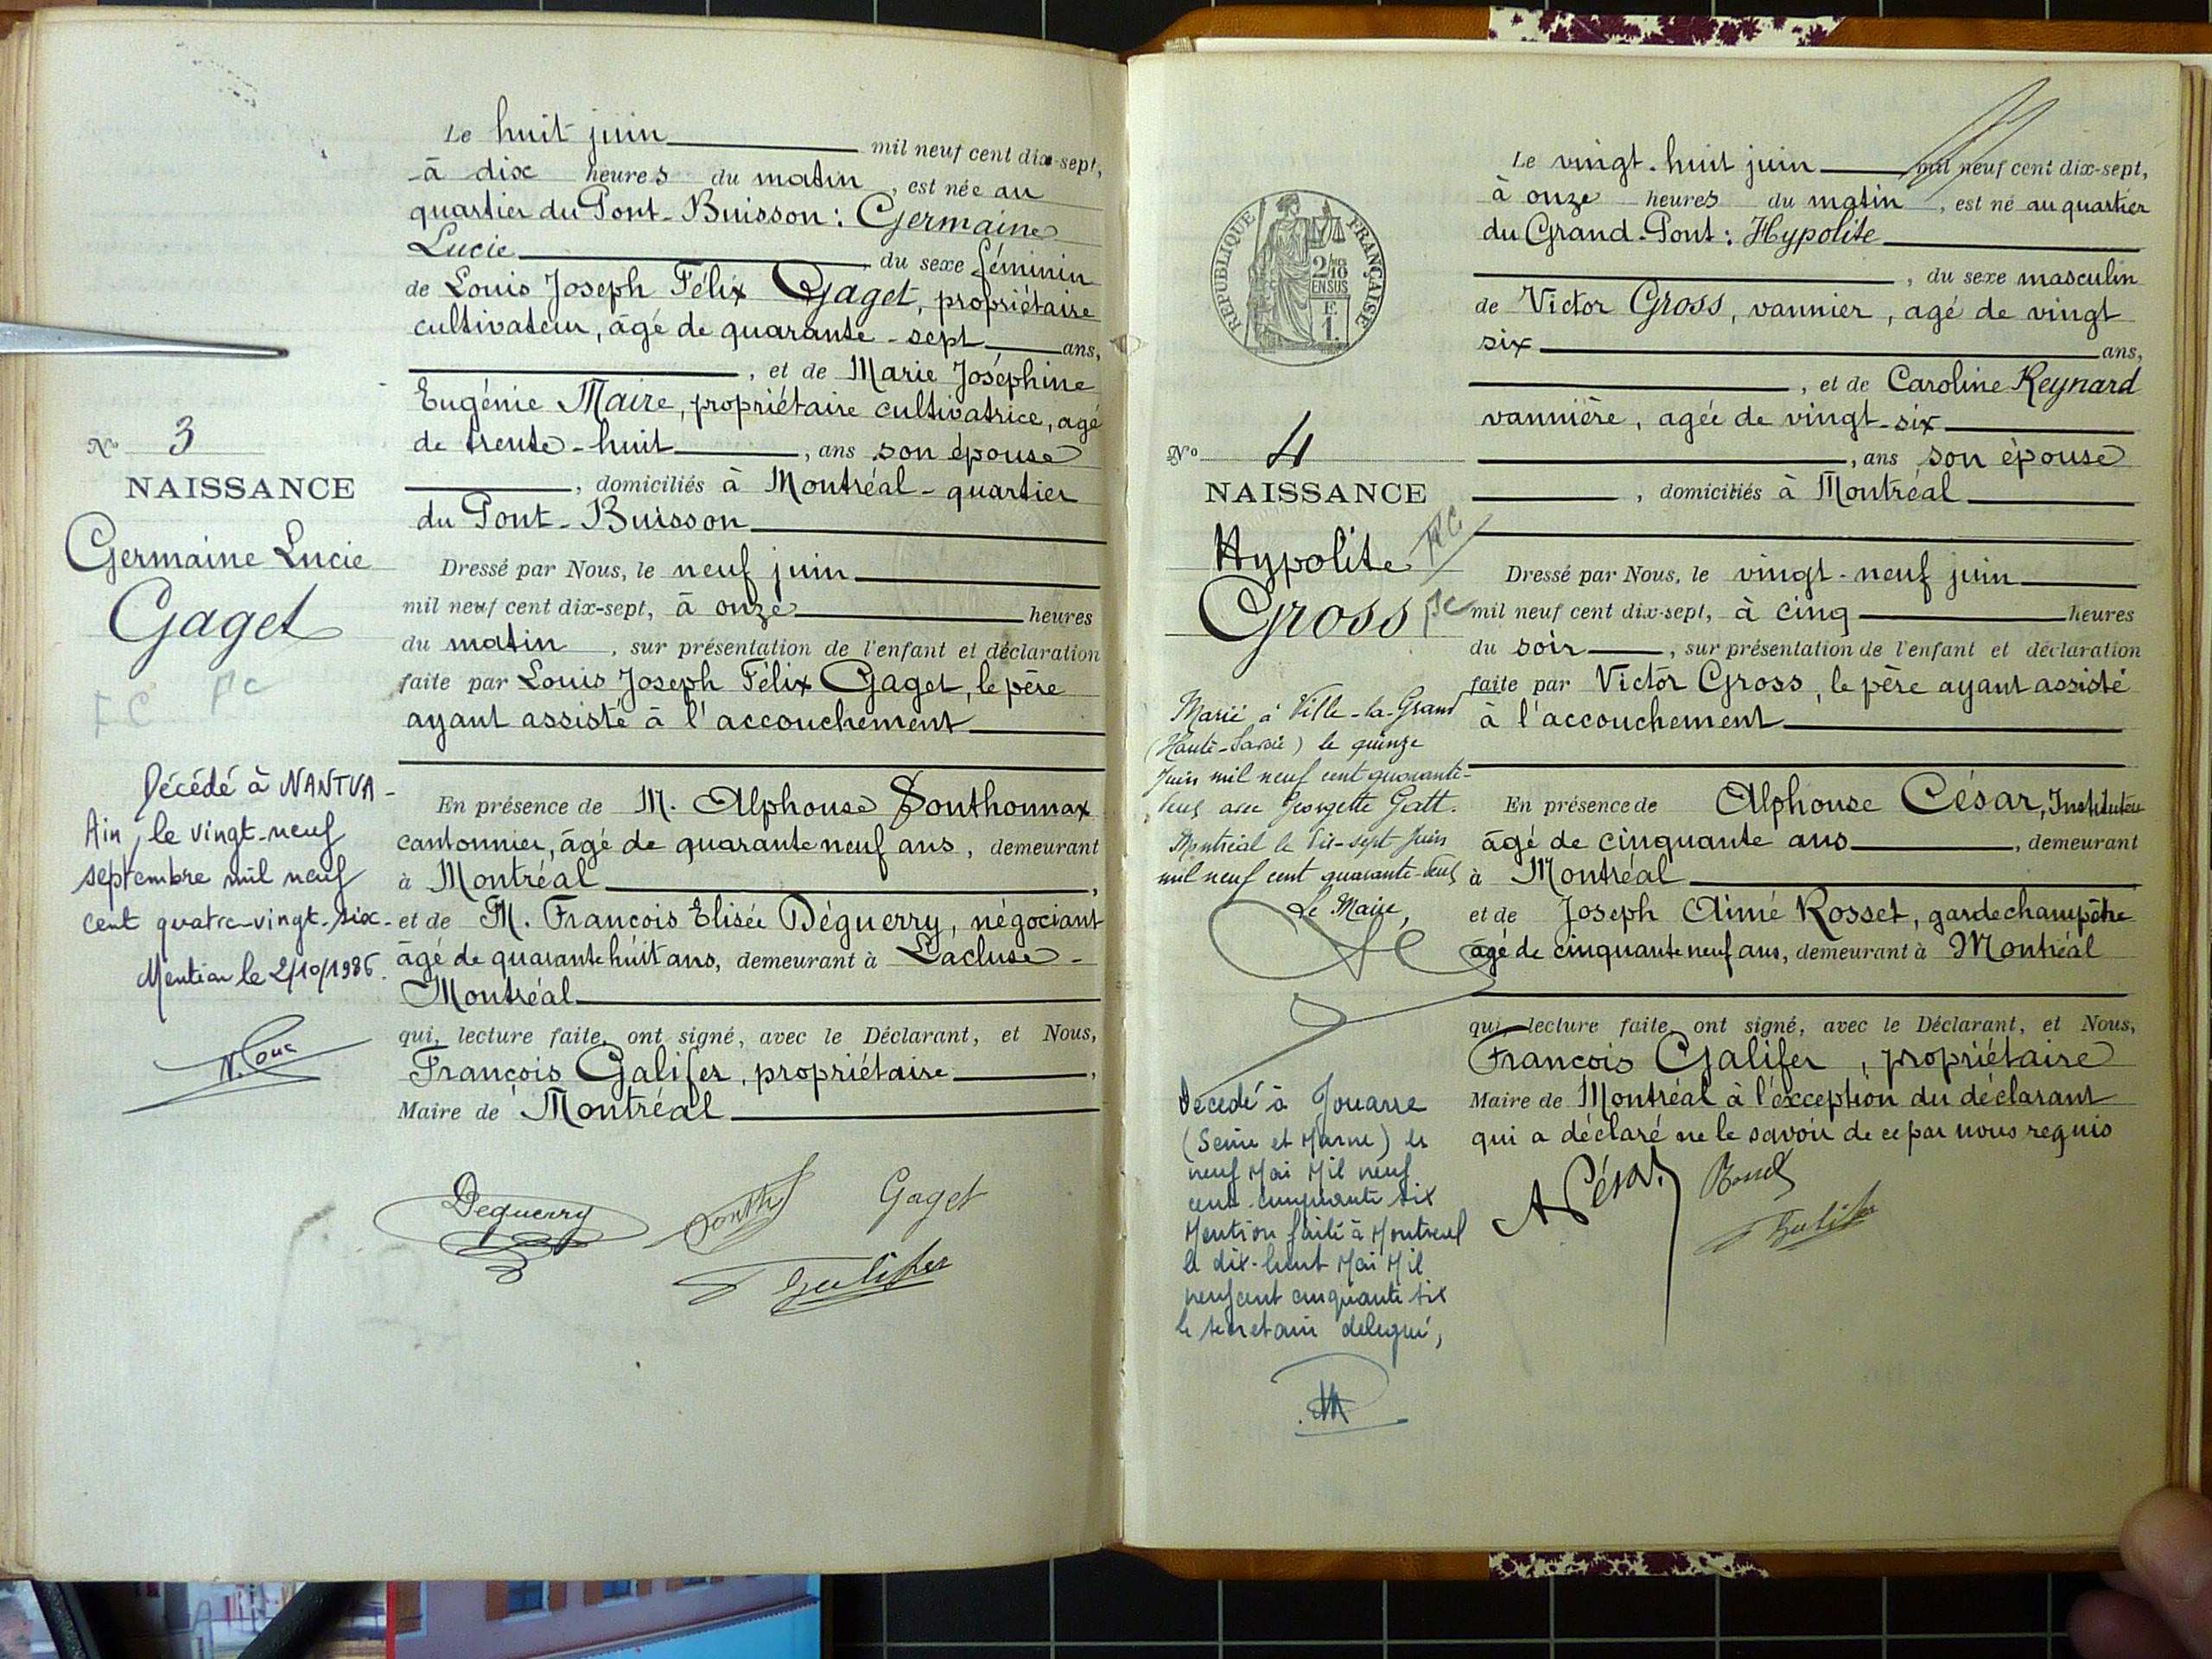 N° 3
NAISSANCE
Germaine Lucie
Gaget
FC
Décédé à NANTUA-
Ain, le vingt-neuf
septembre mil neuf
cent quatre-vingt-six.
Mention le 2/10/1986.
Le huit juin mil neuf cent dix-sept,
à dix heures du matin, est née au
quartier du Pont-Buisson : Germaine
Lucie, du sexe féminin
de Louis Joseph Félix Gaget, propriétaire
cultivateur, âgé de quarante-sept ans,
, et de Marie Joséphine
Eugénie Maire, propriétaire cultivatrice, agé
de trente-huit, ans son épouse
, domiciliés à Montréal-quartier
du Pont-Buisson
Dressé par Nous, le neuf juin
mil neuf cent dix-sept, à onze heures
du matin, sur présentation de l'enfant et déclaration
faite par Louis Joseph Félix Gaget, le père
ayant assisté à l'accouchement
En présence de M. Alphonse Sonthonnax
cantonnier, âgé de quarante neuf ans, demeurant
à Montréal,
et de M. François Elisée Déguerry, négociant
âgé de quarante huit ans, demeurant à Lacluse-
Montréal
qui, lecture faite, ont signé, avec le Déclarant, et Nous,
François Galifer, propriétaire,
Maire de Montréal
Deguerry Sonth Gaget
Galifer
REPUBLIQUE FRANÇAISE
2/10
EN SUS
F.
1.
N° 4
NAISSANCE
Hypolite
Gross
Marié à Ville-la-Grand
(Haute-Savoie) le quinze
Juin mil neuf cent quarante-
deux avec Georgette Gatt.
Montréal le dix-sept Juin
mil neuf cent quarante-deux
Le Maire,
Décédé à Jouarre
(Seine et Marne) le
neuf Mai Mil neuf
cent cinquante six
Mention faite à Montreal
le dix-huit Mai Mil
neuf cent cinquante six
le secretaire delegué,
Le vingt-huit juin mil neuf cent dix-sept,
à onze heures du matin, est né au quartier
du Grand-Pont : Hypolite
, du sexe masculin
de Victor Gross, vannier, agé de vingt
six ans,
, et de Caroline Reynard
vannière, agée de vingt-six
, ans son épouse
, domiciliés à Montréal
Dressé par Nous, le vingt-neuf juin
mil neuf cent dix-sept, à cinq heures
du soir, sur présentation de l'enfant et déclaration
faite par Victor Gross, le père ayant assisté
à l'accouchement
En présence de Alphonse César, Instituteur
âgé de cinquante ans, demeurant
à Montréal
et de Joseph Aimé Rosset, garde champêtre
âgé de cinquante neuf ans, demeurant à Montréal
qui, lecture faite, ont signé, avec le Déclarant, et Nous,
François Galifer, propriétaire
Maire de Montréal à l'exception du déclarant
qui a déclaré ne le savoir de ce par nous requis
A César. Rosset
Galifer